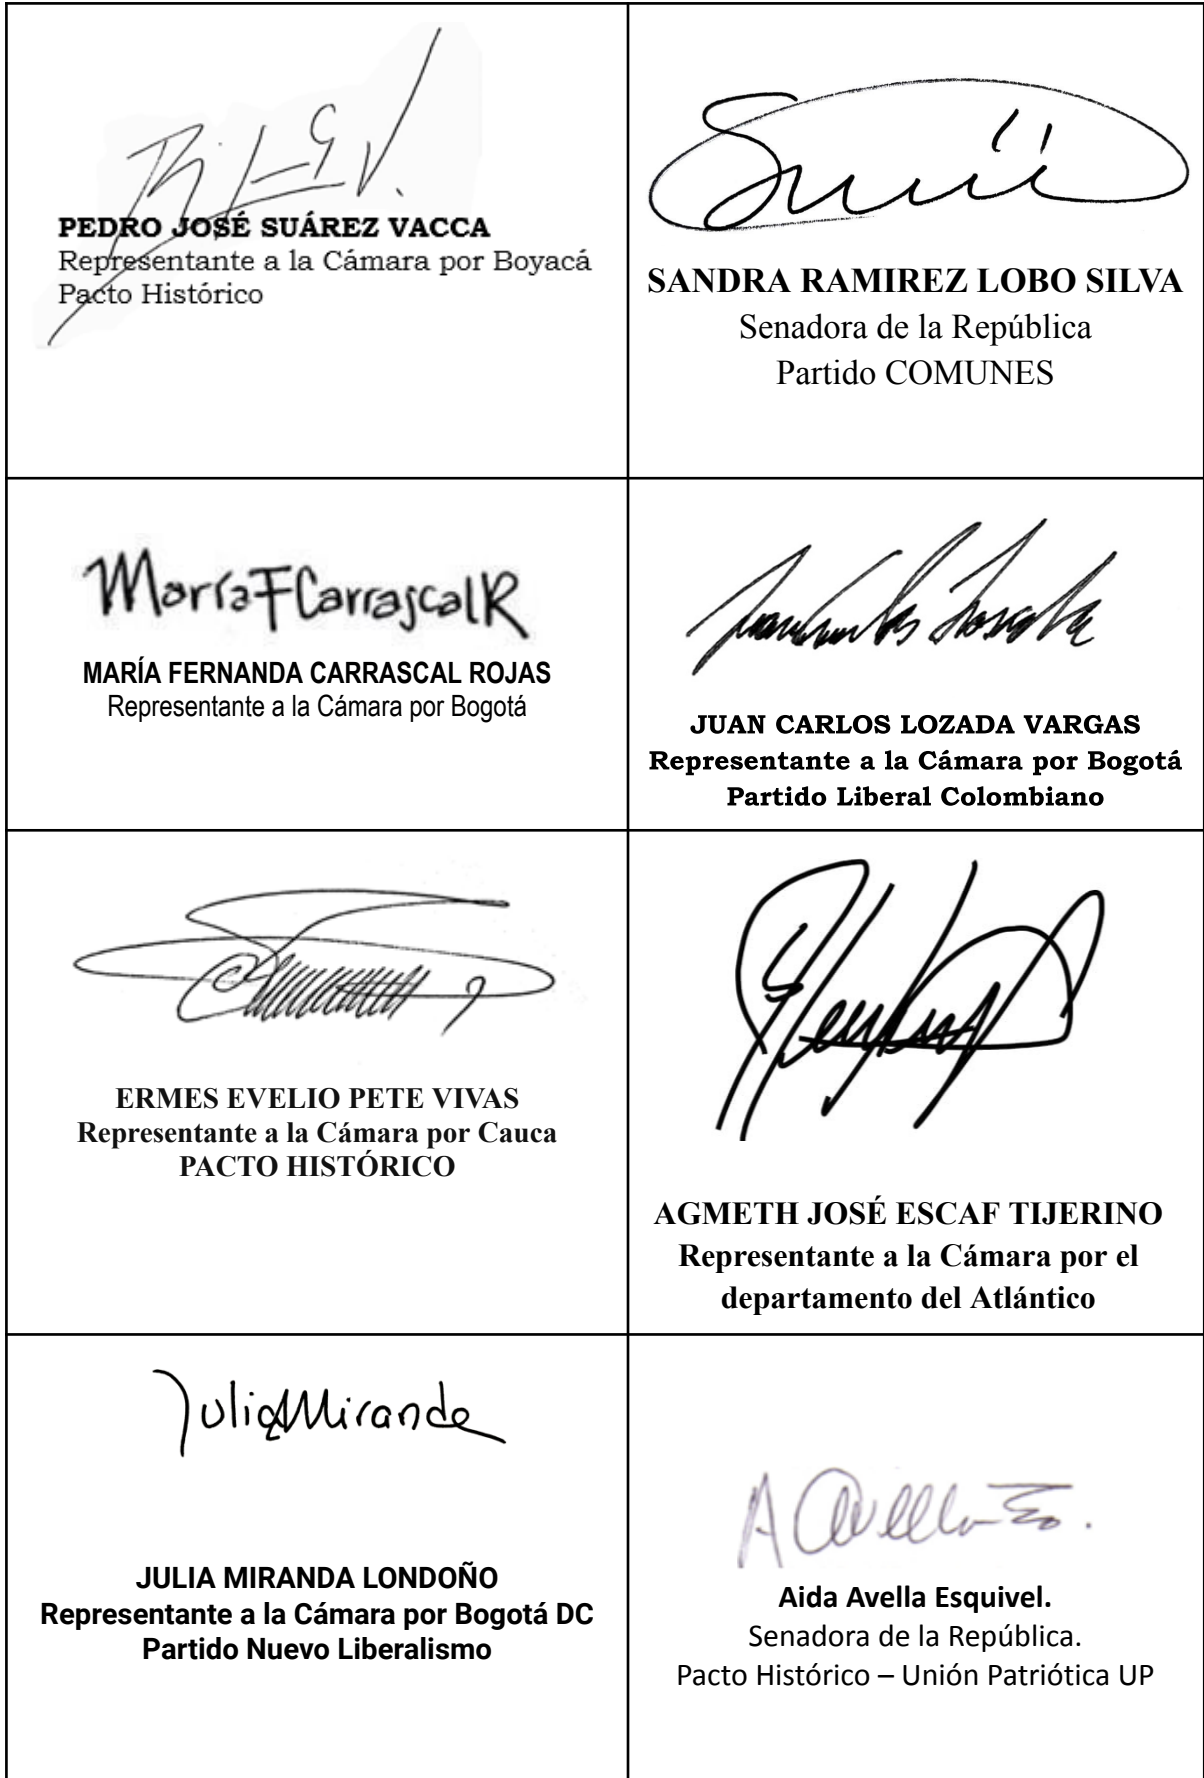 PEDRO JOSÉ SUÁREZ VACCA
Representante a la Cámara por Boyacá
Pacto Histórico
SANDRA RAMIREZ LOBO SILVA
Senadora de la República
Partido COMUNES
María F Carrascal R
MARÍA FERNANDA CARRASCAL ROJAS
Representante a la Cámara por Bogotá
JUAN CARLOS LOZADA VARGAS
Representante a la Cámara por Bogotá
Partido Liberal Colombiano
ERMES EVELIO PETE VIVAS
Representante a la Cámara por Cauca
PACTO HISTÓRICO
AGMETH JOSÉ ESCAF TIJERINO
Representante a la Cámara por el
departamento del Atlántico
Julia Miranda
JULIA MIRANDA LONDOÑO
Representante a la Cámara por Bogotá DC
Partido Nuevo Liberalismo
Aida Avella Esquivel.
Senadora de la República.
Pacto Histórico – Unión Patriótica UP